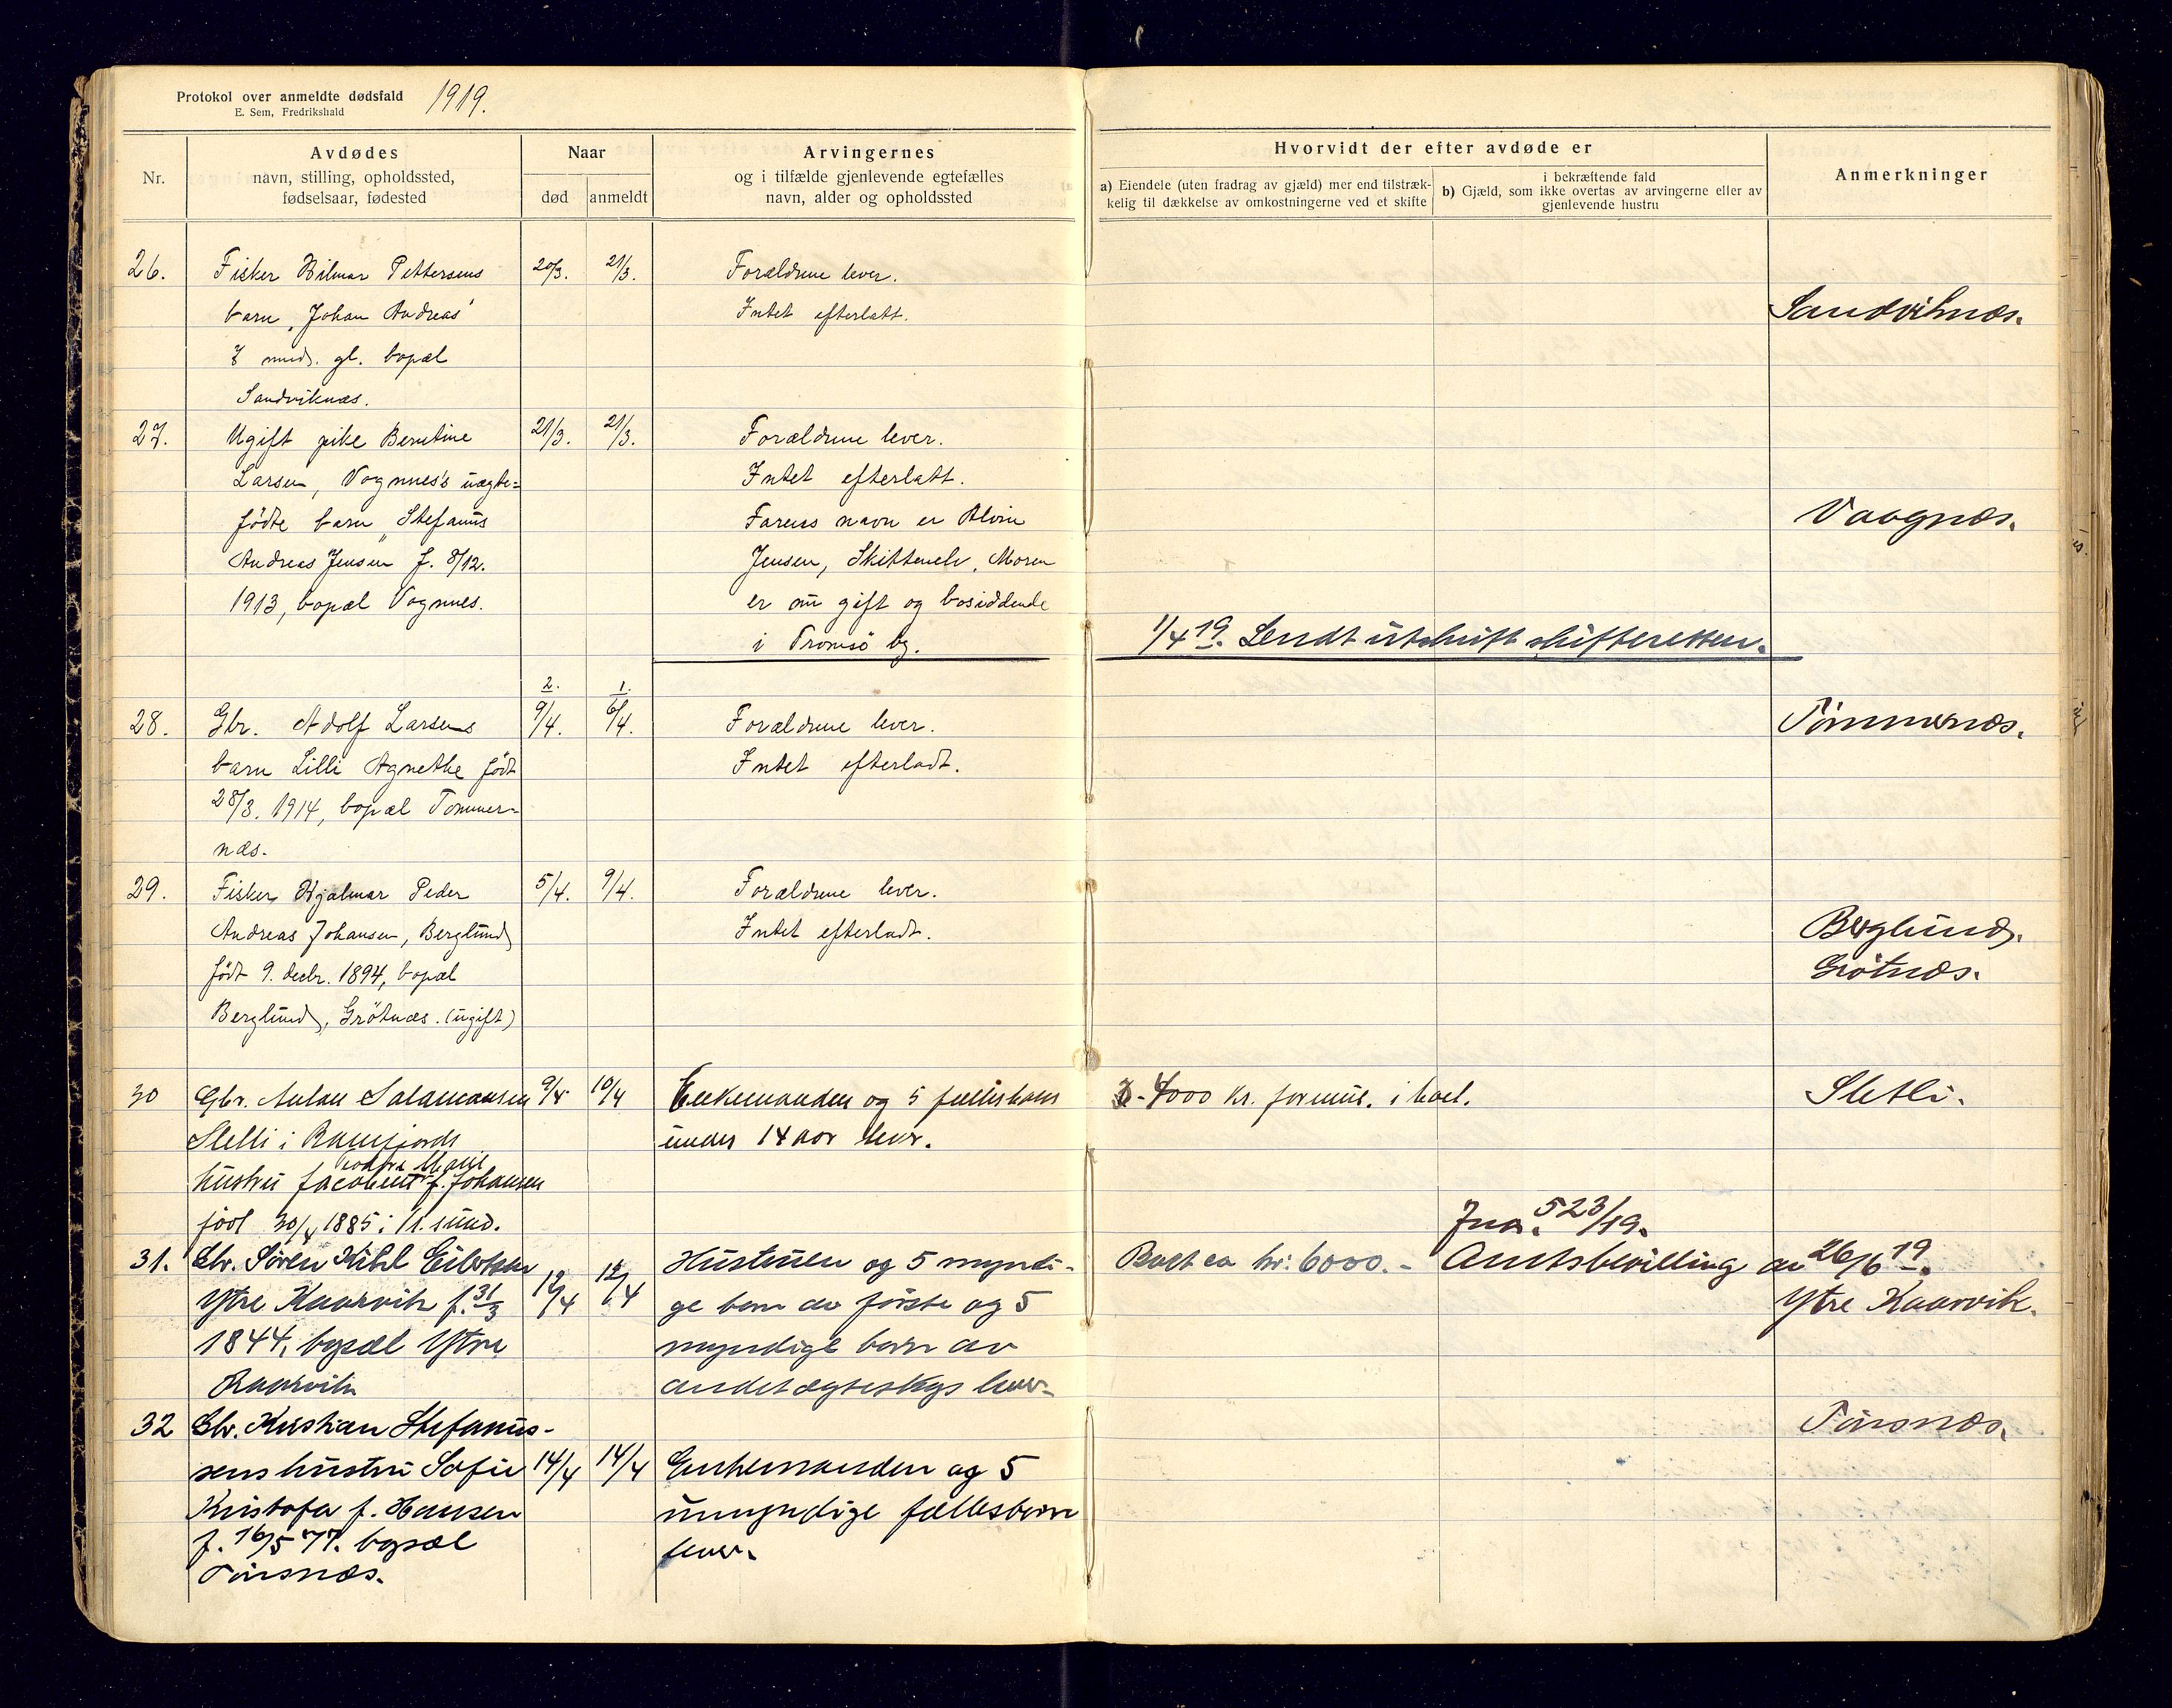 Protokol over anmeldte dødsfald 1919.
E. Sem, Fredrikshald
Nr.
Avdødes
navn, stilling, opholdssted,
fødselsaar, fødested
Naar
død
anmeldt
Arvingernes
og i tilfælde gjenlevende egtefælles
navn, alder og opholdssted
Hvorvidt der efter avdøde er
a) Eiendele (uten fradrag av gjæld) mer end tilstræk-
kelig til dækkelse av omkostningerne ved et skifte
i bekræftende fald
b) Gjæld, som ikke overtas av arvingerne eller av
gjenlevende hustru
Anmerkninger
26. Fisker Hilmar Pettersens 20/3. 21/3. Forældrene lever.
barn „Johan Andreas" Intet efterlatt. Sandviknæs.
mnds. gl. bopæl
Sandviknæs.
27. Ugift pike Berntine 21/3. 21/3. Forældrene lever.
Larsen, Vognnes's uægte- Intet efterlatt.
fødte barn „Stefanus Farens navn er Alvin Vaagnæs.
Andreas Jensen f. 8/12. Jensen, Skittenelv. Moren
1913, bopæl Vognnes. er nu gift og bosiddende
i Tromsö by. 1/4 19. Sendt utskrift skifteretten.
2. 1.
28. Gbr. Adolf Larsens 9/4. 6/4. Forældrene lever. Tömmernæs.
barn Lilli Agnethe født Intet efterladt.
28/3. 1914, bopæl Tømmer-
næs.
29. Fisker Hjalmar Peder 5/4. 9/4. Forældrene lever.
Andreas Johansen, Berglund Intet efterladt. Berglund,
født 9. decbr. 1894, bopæl Grötnæs.
Berglund, Grötnæs. (ugift)
30 Gbr. Anton Salamonsen 9/4 10/4 Enkemanden og 5 fællesbarn 4000 kr. formue. i boet. Sletli.
Sletli i Ramfjords under 14 aar lever.
Marie
hustru f. Johansen
født 30/4 1885 i sund.
Jnr. 523/19.
31. Gbr. Sören Kihl Eilertsen 12/4 12/4 Hustruen og 5 myndi- Boet ca kr: 6000.- Amtsbevilling av 26/6 19.
Ytre Kaarvik f. 31/3 ge barn av første og 5 Ytre Kaarvik.
1844, bopæl Ytre myndige barn av
Kaarvik andet ægteskaps lever
32 Gbr. Kristian Stefanus- Tönsnæs.
sens hustru Sofie 14/4 14/4 Enkemanden og 5
Kristofa f. Hansen umyndige fællesbarn
f. 16/5 77. bopæl lever.
Tönsnæs.